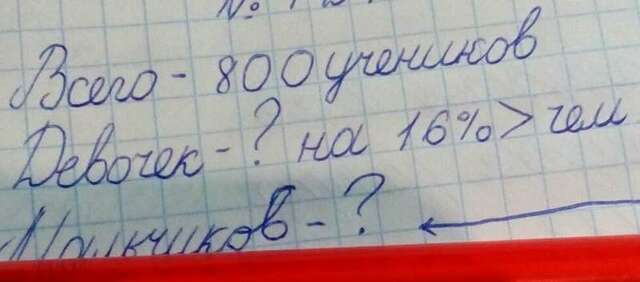 №
Всего - 800 учеников
Девочек - ? на 16% > чем
Мальчиков - ?